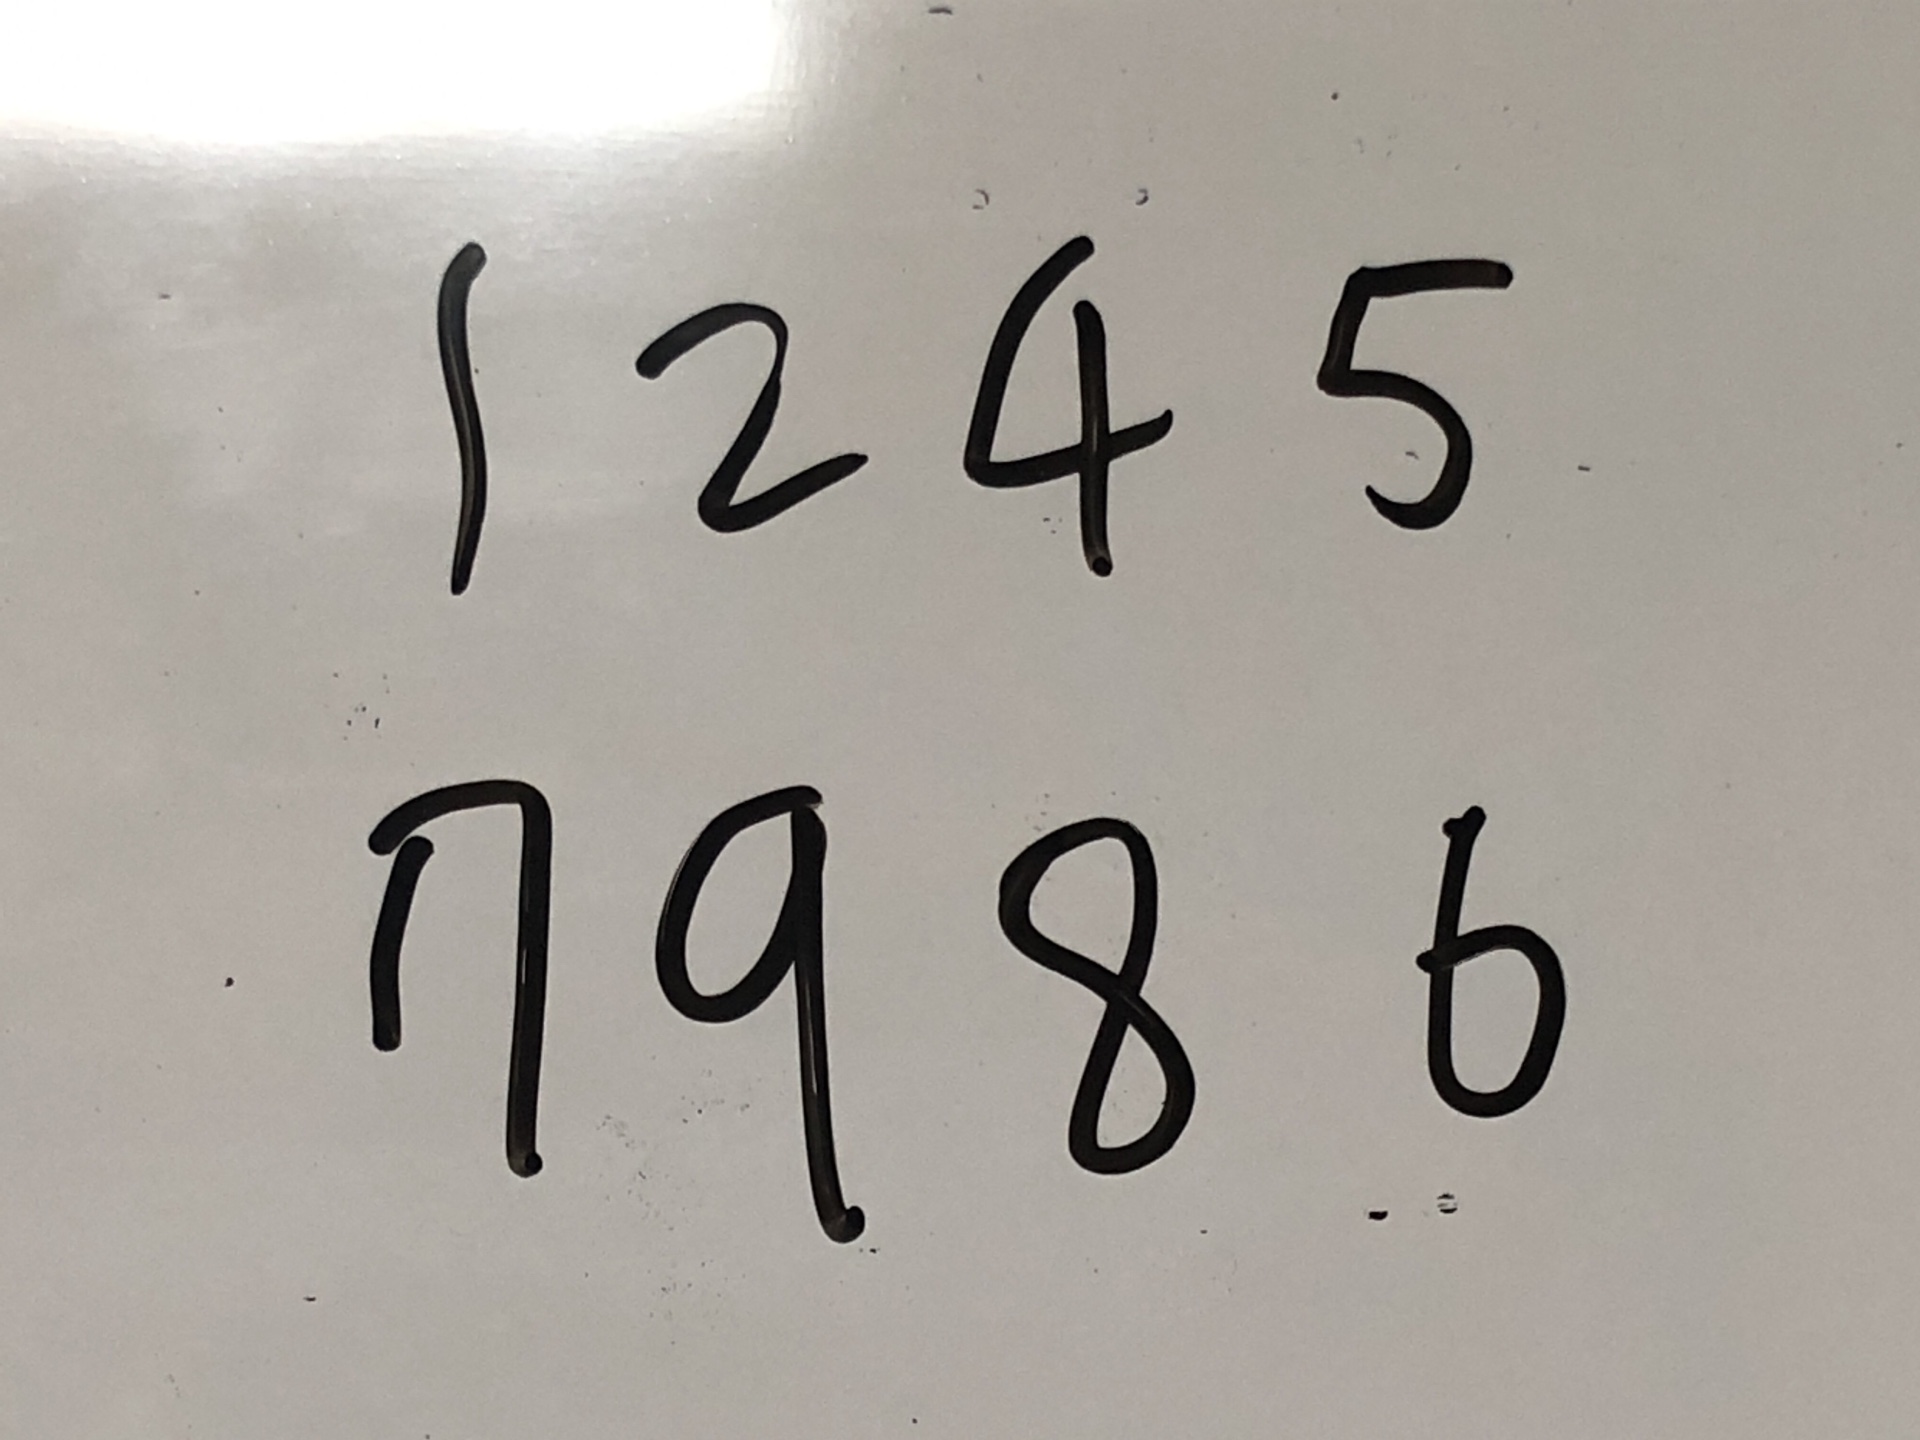 1 2 4 5
7 9 8 6